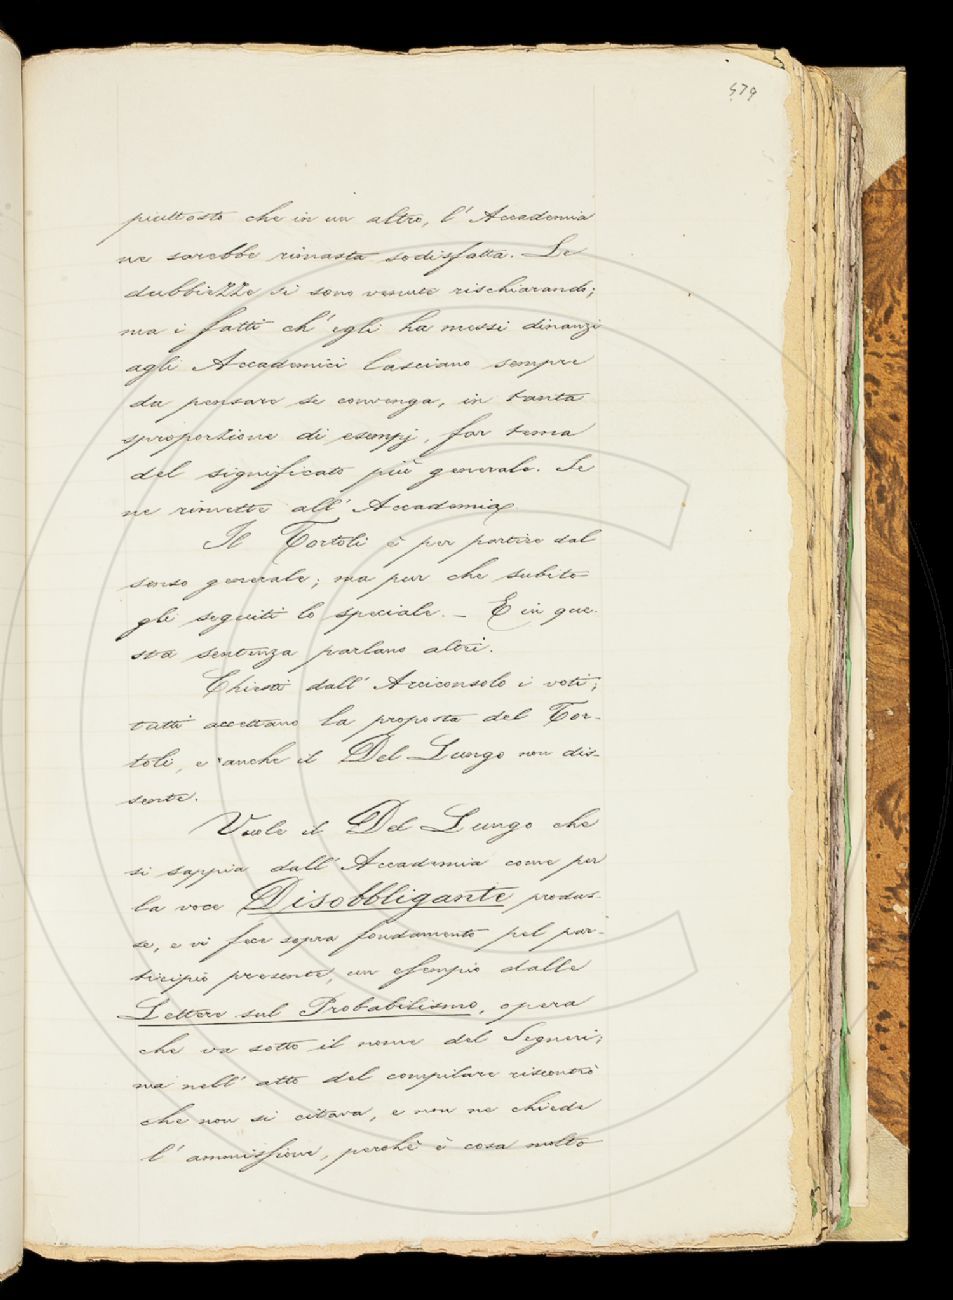 479
piuttosto che in un altro, l'Accademia
ne sarebbe rimasta sodisfatta. Le
dubbiezze si sono venute rischiarando;
ma i fatti ch'egli ha messi dinanzi
agli Accademici lasciano sempre
da pensare se convenga, in tanta
sproporzione di esempj, far tema
del significato più generale. Se
ne rimette all'Accademia.
Il Tortoli è per partire dal
senso generale; ma pur che subito
gli seguiti lo speciale. — E in que-
sta sentenza parlano altri.
Chiesti dall'Arciconsolo i voti;
tutti accettano la proposta del Tor-
toli, e anche il Del Lungo non dis-
sente.
Vuole il Del Lungo che
si sappia dall'Accademia come per
la voce Disobbligante produs-
se, e vi fece sopra fondamento pel par-
ticipio presente, un esempio dalle
Lettere sul Probabilismo, opera
che va sotto il nome del Segneri;
ma nell'atto del compilare riscontrò
che non si citava, e non ne chiede
l'ammissione, perchè è cosa molto